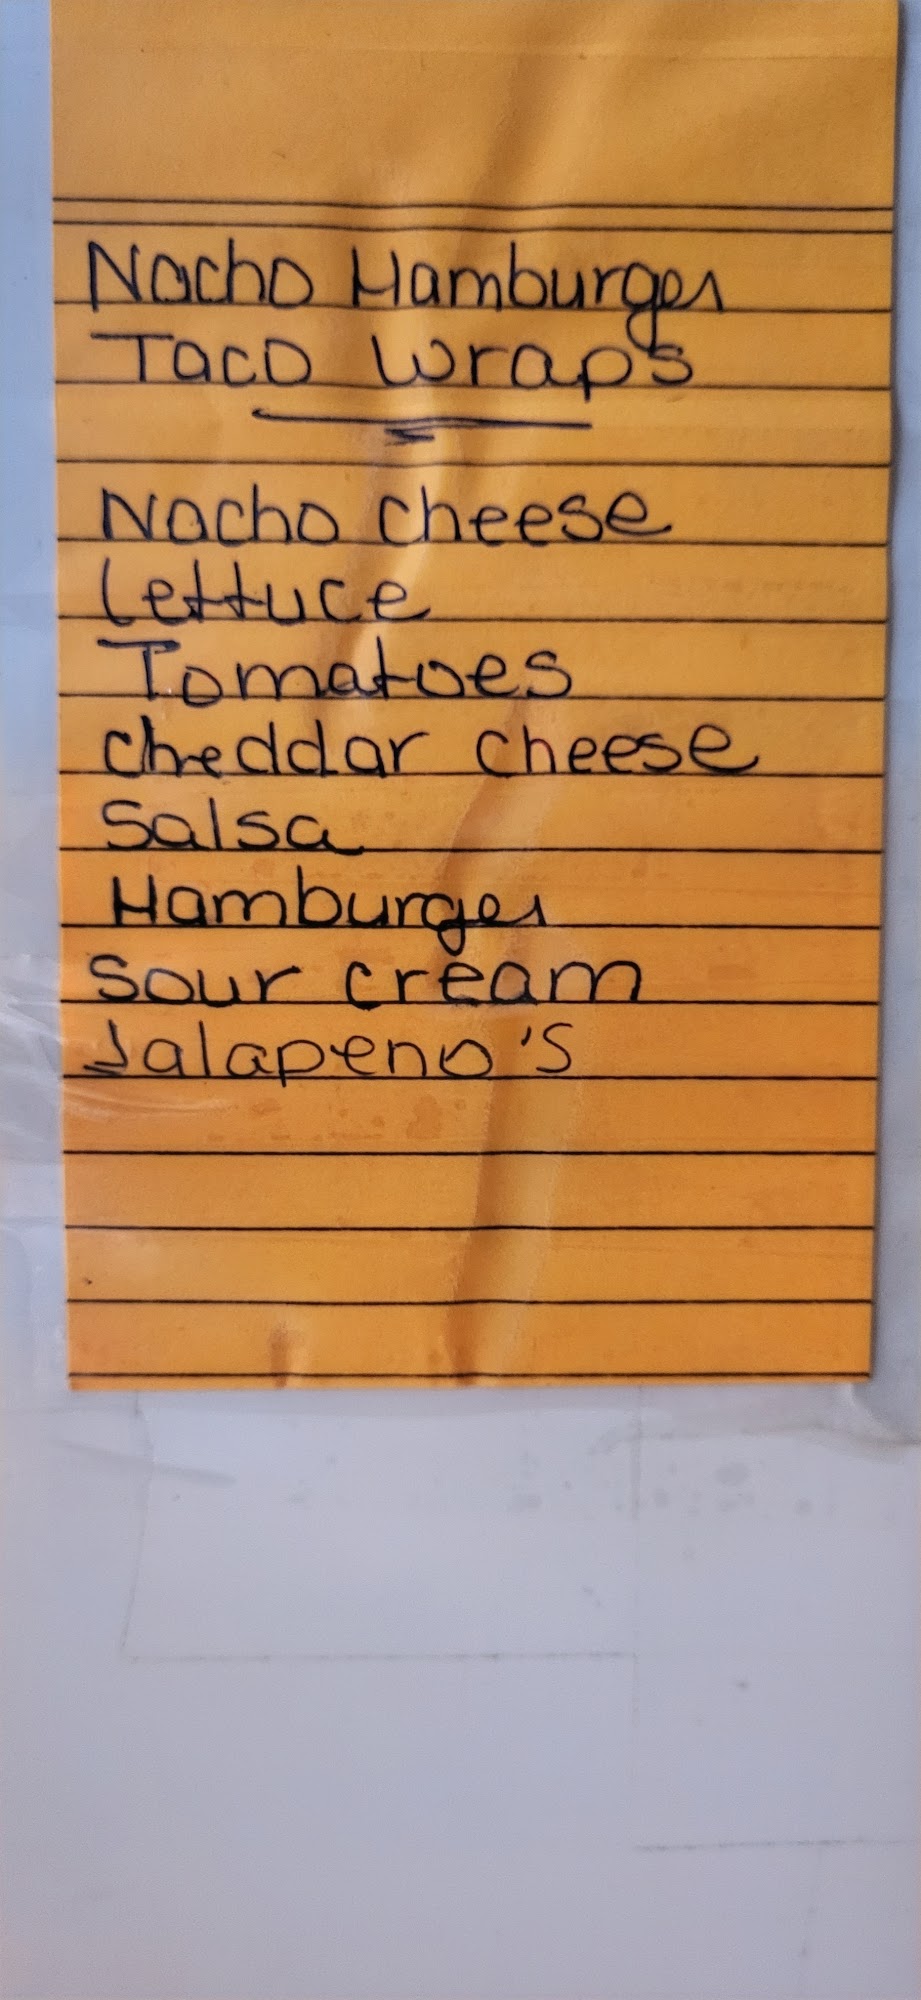 Nacho Hamburger
Taco Wraps
Nacho cheese
Lettuce
Tomatoes
Cheddar cheese
Salsa
Hamburger
Sour cream
Jalapeno's